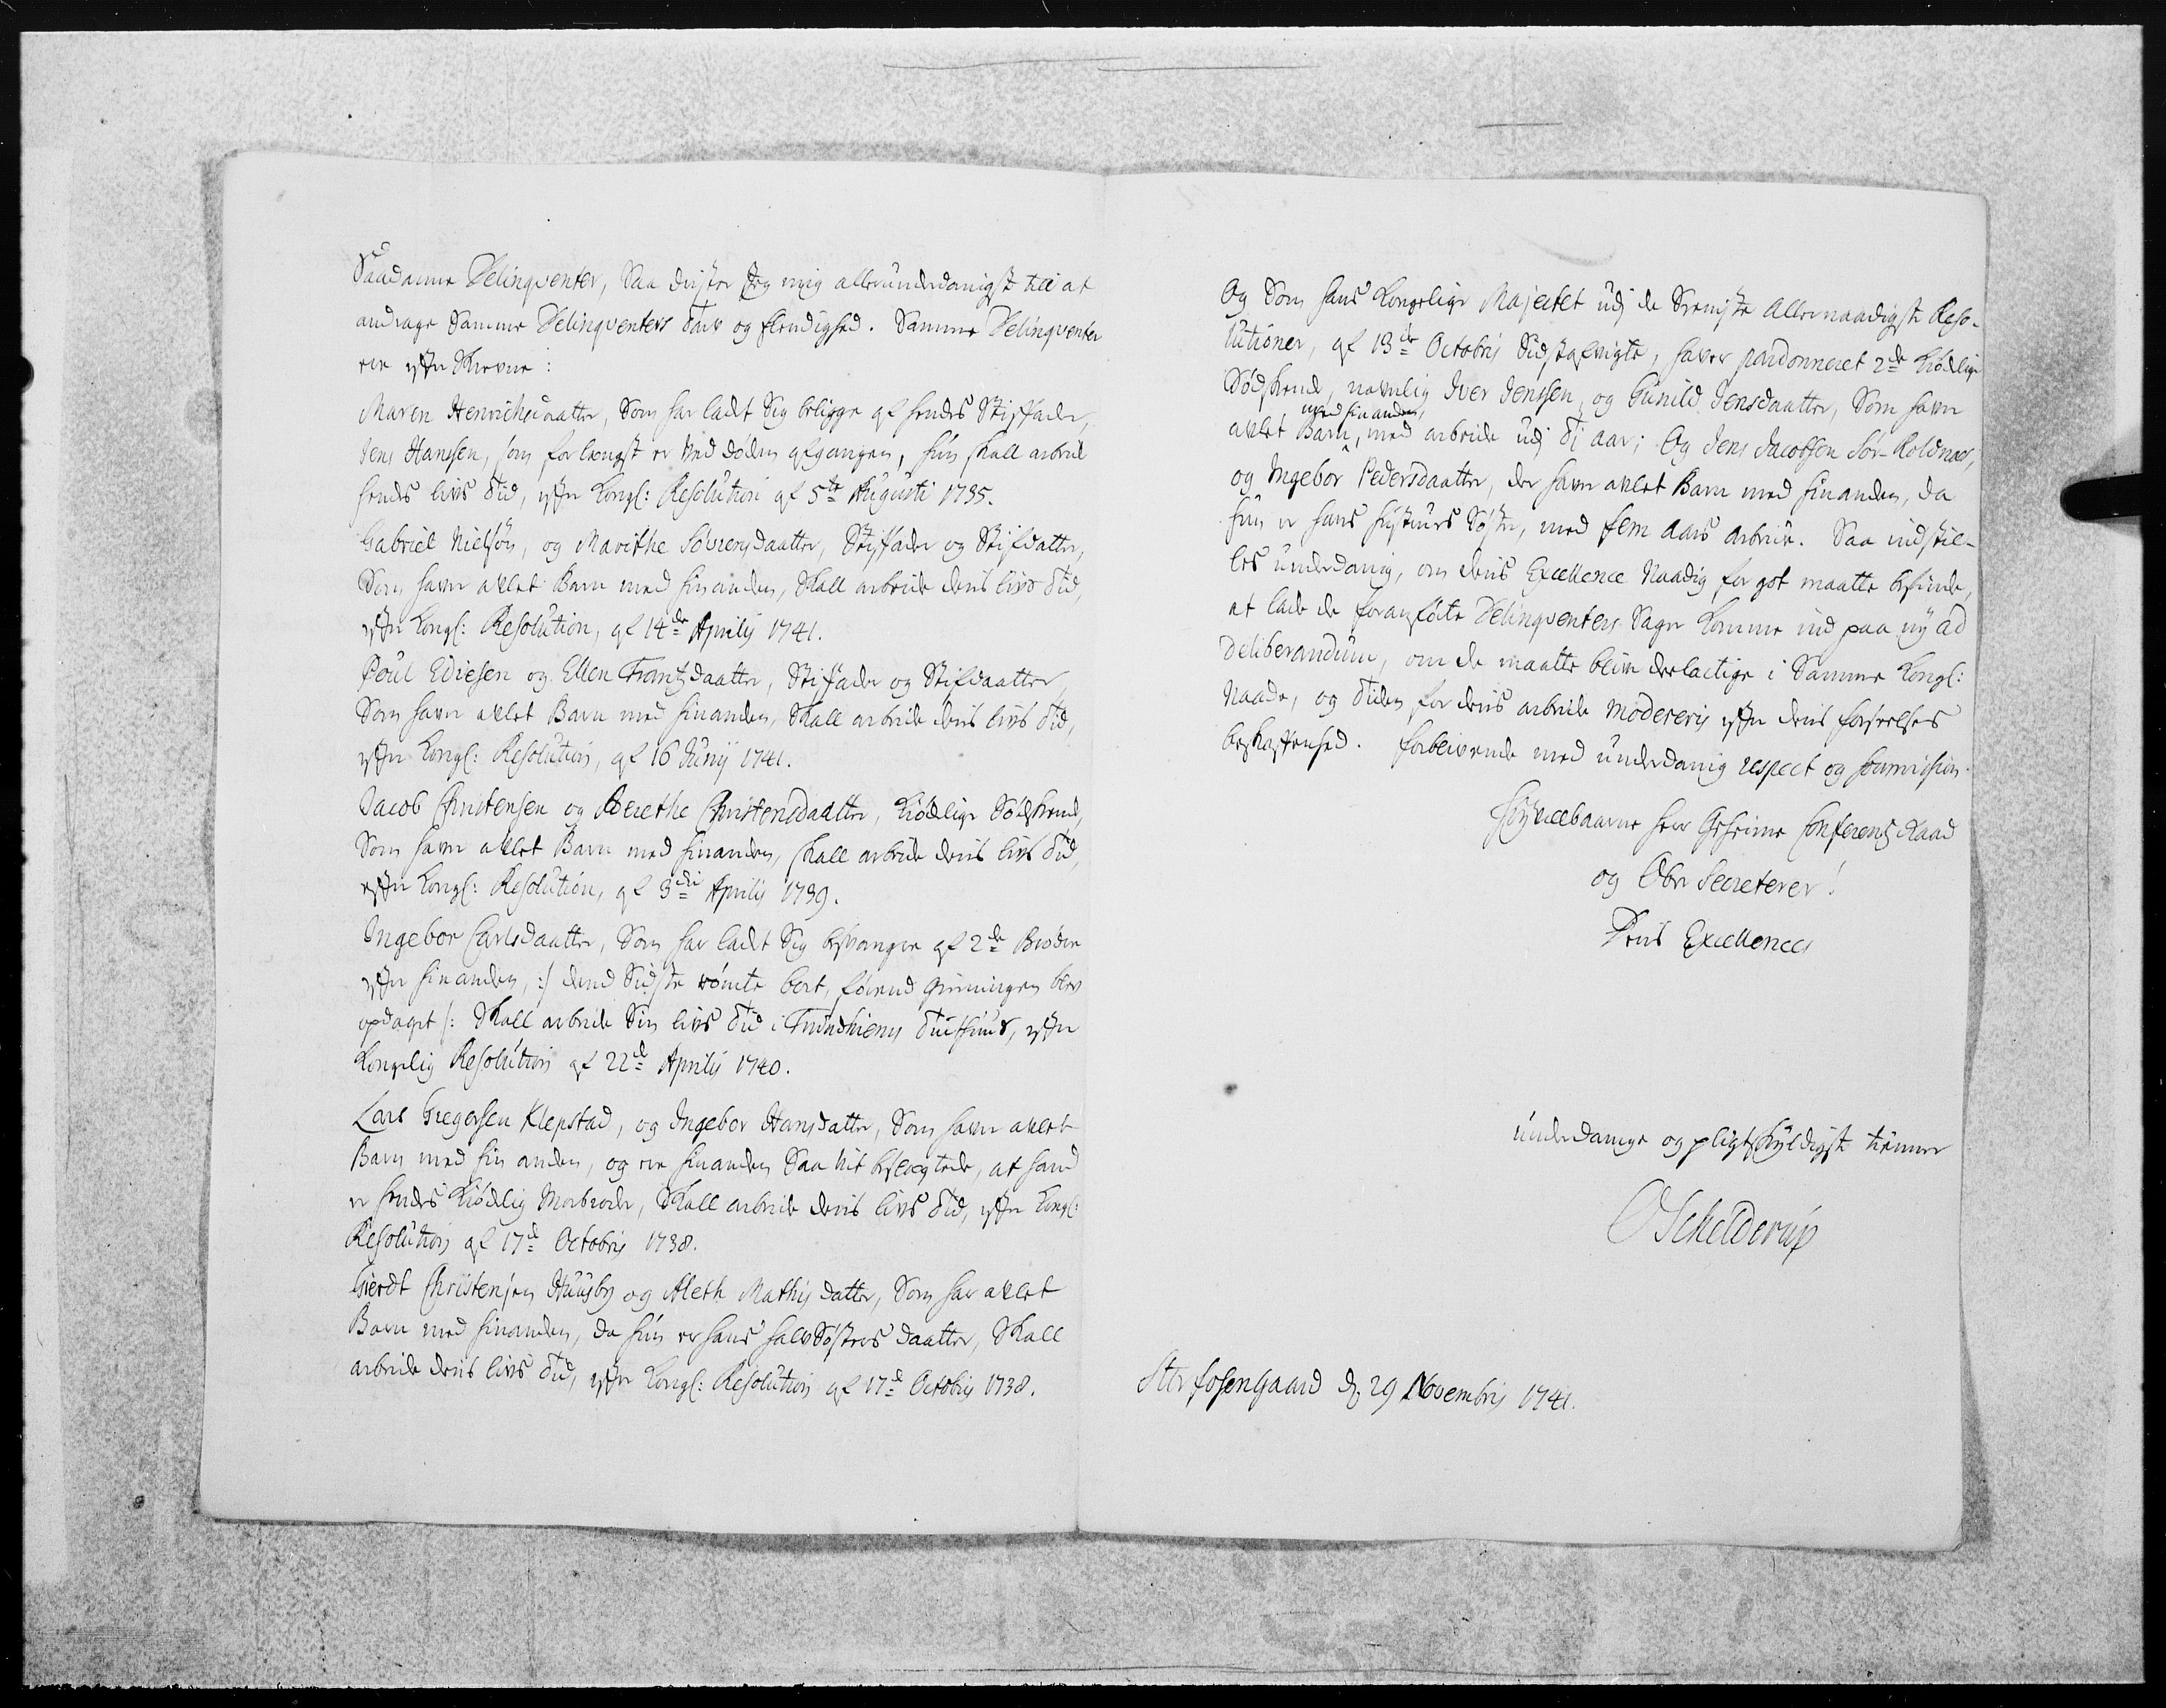 Saadanne Delinqventer, Saa drister Jeg mig allerunderdanigst till at
andrage Samme Delinqventers Tarv og Elendighed. Samme Delinqventer
ere efterskrevne:
Maren Henrichsdaatter, Som har ladt Sig beligge af hendes Stiffader,
Jens Hanssen, som forlængst er ved døden afgangen, hun skall arbeide
hendes livs Tid, efter Kongl: Resolution af 5te Augusti 1735.
Gabriel Nielsøn, og Marithe Sørrensdaatter, Stiffader og Stifdatter,
Som haver aulet Barn med hinanden, Skall arbeide deris livs Tid,
efter Kongl: Resolution, af 14de Aprilij 1741.
Poul Ediesen og Ellen Frantzdaatter, Stiffader og Stifdaatter,
Som haver aulet Barn med hinanden, Skall arbeide deris livs Tid,
efter Kongl: Resolution, af 16 Junij 1741.
Jacob Christensen og Berethe Christensdaatter, Kiødelige Sødskend,
Som haver aulet Barn med hinanden, skall arbeide deris livs Tid,
efter Kongl: Resolution, af 3die Aprilij 1739.
Ingebor Carlsdaatter, Som har ladt Sig besvangre af 2de Brødre
efter hinanden, :/ dend Sidste rømte bort, førend Gierningen blev
opdaget /: Skall arbeide Sin livs Tid i Trundhiems Tuchthuus, efter
Kongelig Resolution af 22de Aprilij 1740.
Lars Gregersen Klepstad, og Ingebor Hansdatter, Som haver aulet
Barn med hin anden, og ere hinanden Saa nit beslegtede, at hand
er hendes Kiødelig Morbroder, Skall arbeide deris livs Tid, efter Kongl:
Resolution af 17de Octobris 1738.
Gierdt Christensen Huusby og Aleth Mathisdatter, Som har aulet
Barn med hinanden, da hun er hans halv Søsters daatter, Skall
arbeide deris livs Tid, efter Kongl: Resolution af 17de Octobris 1738.
Og Som hans Kongelige Majestet udj de Seeniste Allernaadigste Reso-
lutioner, af 13de Octobris Sidstafvigte, haver pardonneret 2de Kiødelige
Sødskend, navnlig Iver Jenssen, og Gunild Jensdaatter, Som haver
med hinanden,
aulet Barn, med arbeide udj Ti aar; Og Jens Jacobsen Sør-Roldnæs,
og Ingebor Pedersdaatter, der haver aulet Barn med hinanden, da
hun er hans Hustrues Søster, med fem aars arbeide. Saa indstil-
les underdanig, om deris Excellence Naadig for got maatte befinde,
at lade de foranførte Delinqventers Sager komme ind paa ny ad
Deliberandum, om de maatte blive deelactige i Samme Kongl:
Naade, og Tiden for deris arbeide modereris efter deris forseelses
beskaffenhed. forblivende med underdanig respect og soumission
Høyvelbaarne Herr Geheime Conferentz Raad
og Ober Secreterer!
Deris Excellences
underdanige og pligtskyldigste tiener
O Schelderup
Storfosengaard d. 29 Novembris 1741.